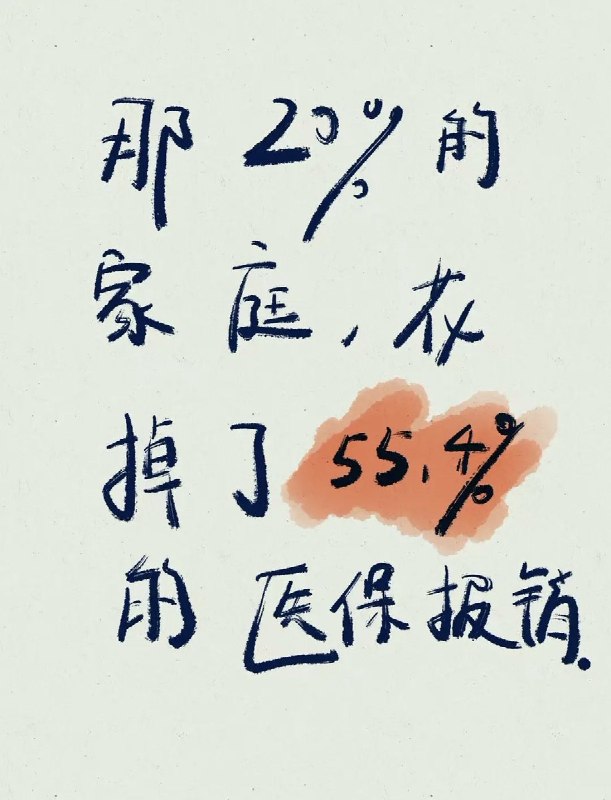 那20%的
家庭,花
掉了55.4%
的医保报销.